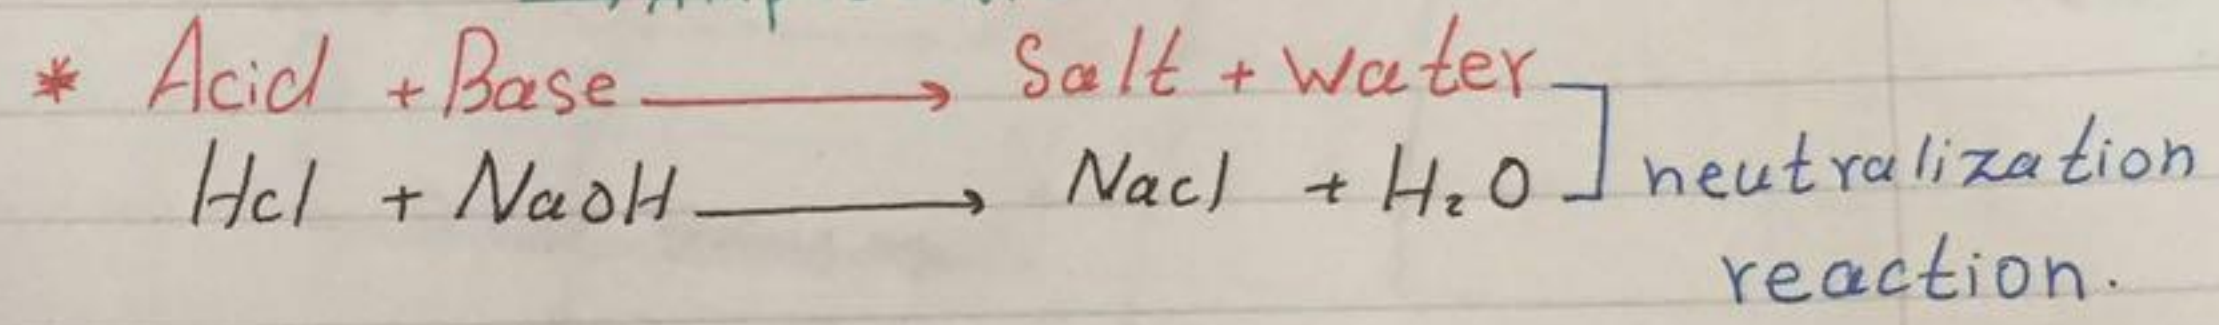 * Acid + Base → Salt + Water
Hcl + NaOH → Nacl + H₂O ] neutralization
reaction.